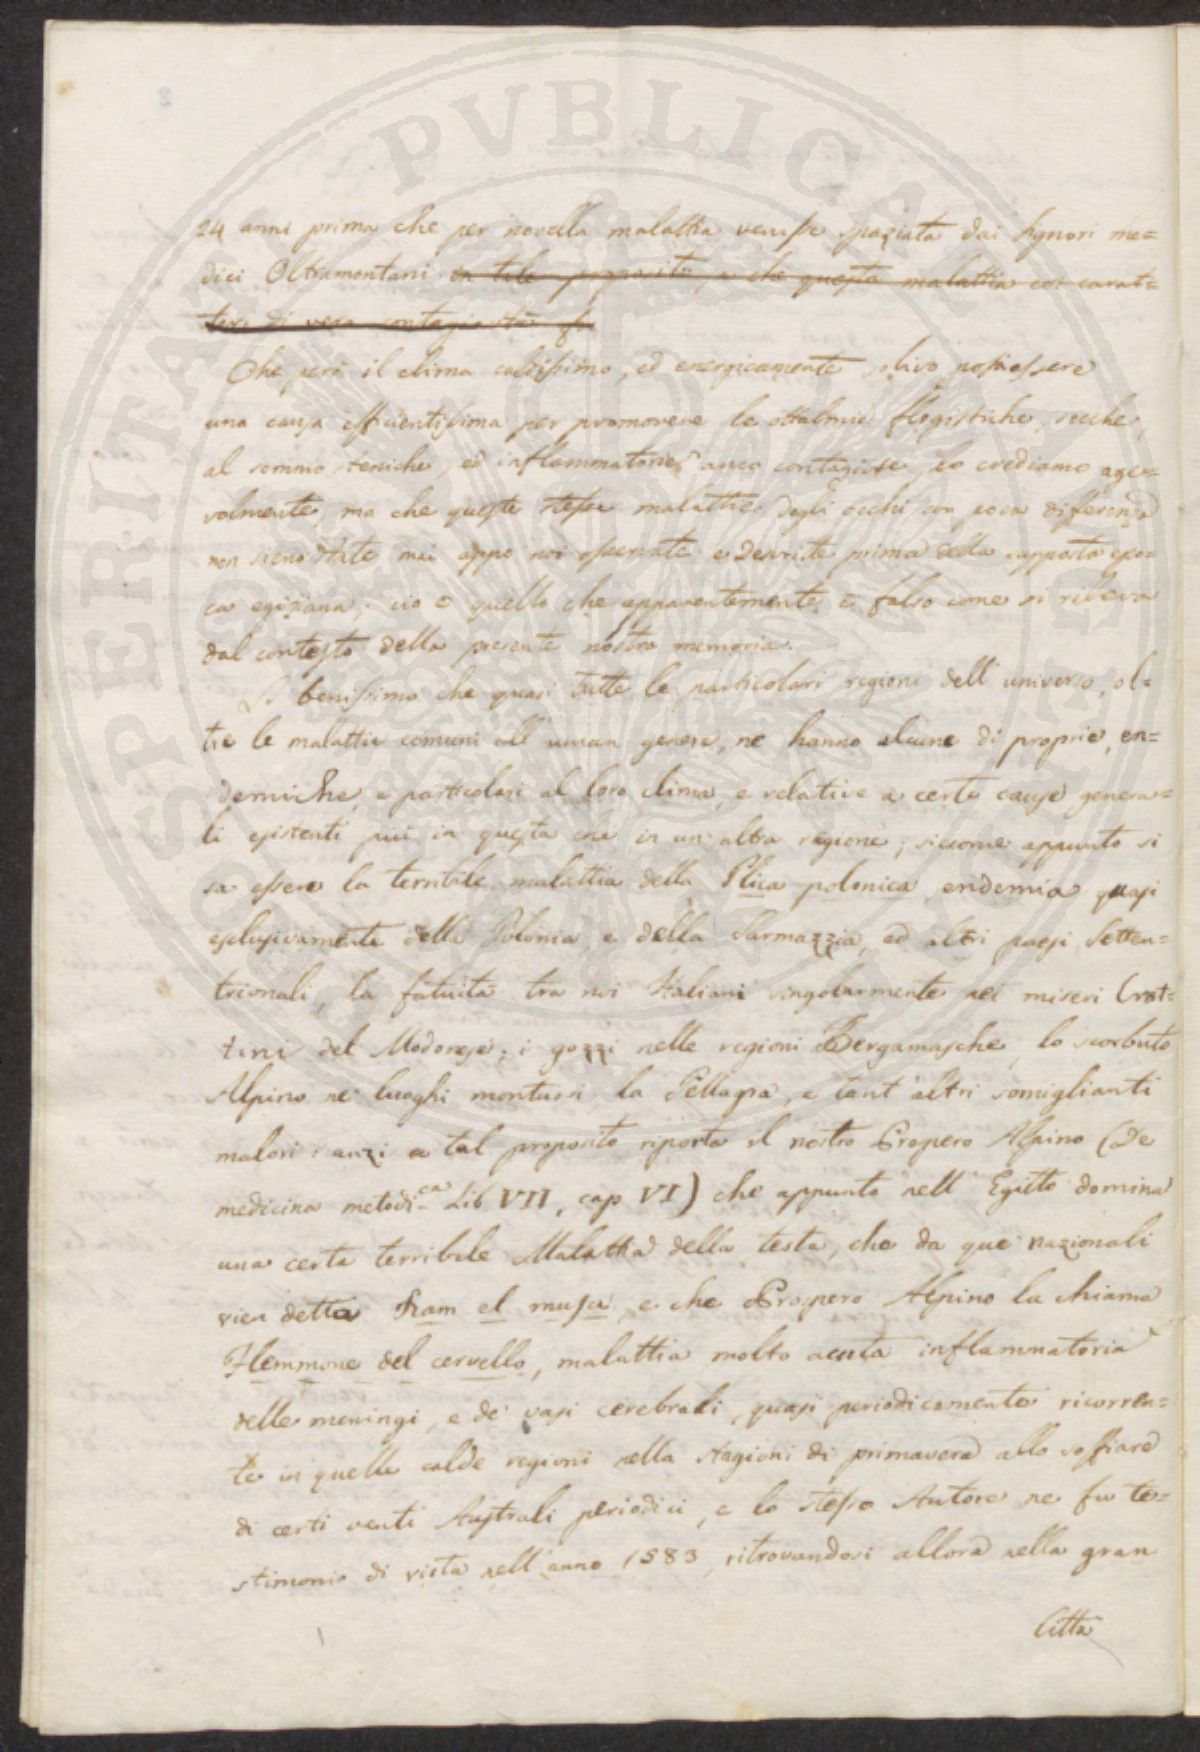 24 anni prima che per novella malattia venisse spaziata dai Signori me=
dici Oltramontani in tale proposito, e che questa malattia coi carat=
teri di vera contagiosità
Che però il clima caldissimo, ed energicamente possa essere
una causa efficientissima per promovere le ottalmie flogistiche, secche,
al sommo steniche, ed inflammatorie, anco contagiose, lo crediamo age=
volmente, ma che queste stesse malattie degli occhi con poca differenza
non sieno state mai appo noi osservate e descritte prima della supposta epo=
ca egiziana; ciò è quello che apparentemente è falso come si rileva
dal contesto della presente nostra memoria.
So benissimo che quasi tutte le particolari regioni dell' universo, ol=
tre le malattie comuni all' uman genere, ne hanno alcune di proprie, en=
demiche, e particolari al loro clima, e relative a certe cause genera=
li esistenti più in questa che in un' altra regione; siccome appunto si
sa essere la terribile malattia della Plica polonica endemia quasi
esclusivamente della Polonia, e della Sarmazzia, ed altri paesi Setten=
trionali, la fatuità tra noi Italiani singolarmente nei miseri Cret=
tini del Modonese; i gozzi nelle regioni Bergamasche, lo scorbuto
Alpino ne' luoghi montuosi, la Pellagra, e tant' altri somiglianti
malori: anzi a tal proposito riporta il nostro Prospero Alpino (De
medicina metodica Lib VII, cap VI) che appunto nell' Egitto domina
una certa terribile Malattia della testa, che da que' nazionali
vien detta Dam el musa, e che Prospero Alpino la chiama
Flemmone del cervello, malattia molto acuta inflammatoria
delle meningi, e de' vasi cerebrali, quasi periodicamente ricorren=
te in quelle calde regioni nella stagioni di primavera allo soffiare
di certi venti Australi periodici, e lo stesso Autore ne fu te=
stimonio di vista nell' anno 1583, ritrovandosi allora nella gran
Città
PVBLICAE